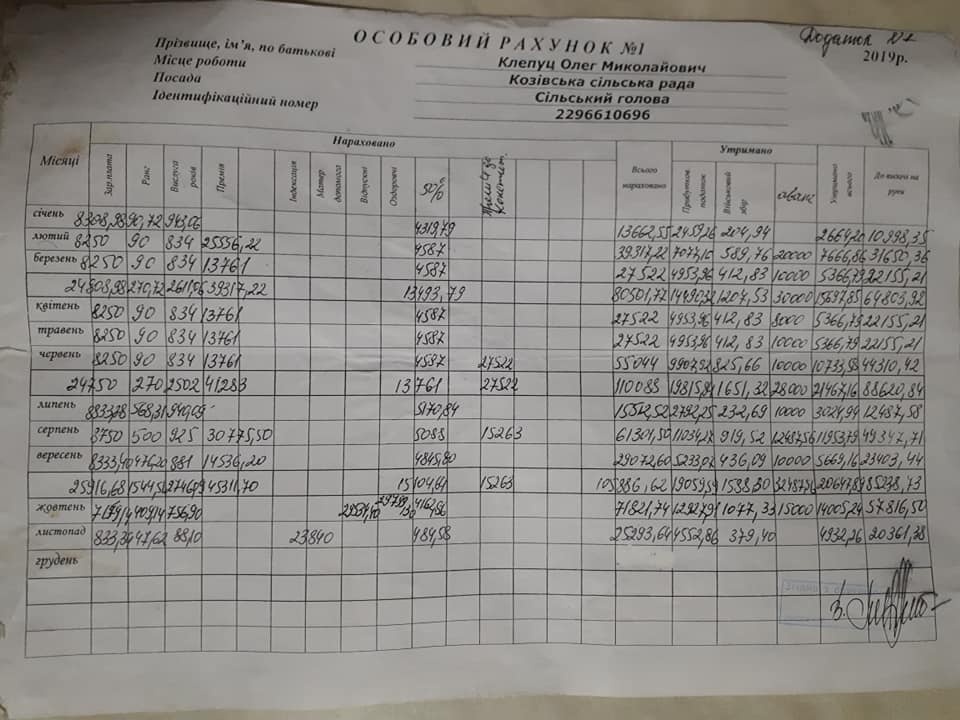 Додаток №1
ОСОБОВИЙ РАХУНОК №1 2019р.
Прізвище, ім'я, по батькові Клепуц Олег Миколайович
Місце роботи Козівська сільська рада
Посада Сільський голова
Ідентифікаційний номер 2296610696
Місяці Нараховано Утримано
Зарплата Ранг Вислуга років Премія Індексація Матер. допомога Відпускні Оздоровчі 50% Всього нараховано Прибутков. податок Військовий збір аванс Утримано всього До видачі на руки
січень 8308,98 90,72 943,06 4319,79 13662,55 2459,26 204,94 2664,20 10998,35
лютий 8250 90 834 25556,22 4587 39317,22 7077,10 589,76 20000 7666,86 31650,36
березень 8250 90 834 13761 4587 27522 4953,96 412,83 10000 5366,79 22155,21
24808,98 270,72 2611,06 39317,22 13493,79 80501,77 14490,32 1207,53 30000 15697,85 64803,92
квітень 8250 90 834 13761 4587 27522 4953,96 412,83 8000 5366,79 22155,21
травень 8250 90 834 13761 4587 27522 4953,96 412,83 10000 5366,79 22155,21
червень 8250 90 834 13761 4587 27522 55044 9907,92 825,66 10000 10733,58 44310,42
24750 270 2502 41283 13761 27522 110088 19815,84 1651,32 28000 21467,16 88620,84
липень 568,31 940,09 5170,84 15512,52 2792,25 232,69 10000 3024,94 12487,58
серпень 8750 500 925 30775,50 5088 15263 61301,50 11034,27 919,52 12487,56 11953,79 49347,71
вересень 8333,40 476,20 881 14536,20 4845,80 29072,60 5233,07 436,09 10000 5669,16 23403,44
25916,68 1544,51 2746,09 45311,70 15104,64 15263 105886,62 19059,59 1588,30 32487,56 20647,89 85238,73
жовтень 4162,56 71821,74 12927,91 1077,33 15000 14005,24 57816,50
листопад 833,34 47,62 88,10 23840 484,58 25293,64 4552,86 379,40 4932,26 20361,38
грудень